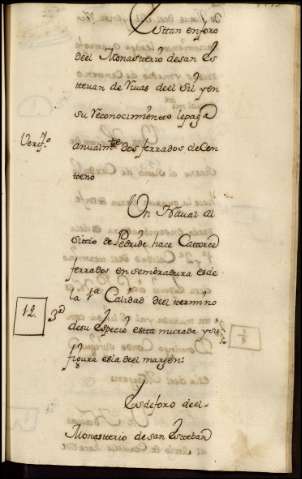 Esttan en foro
deel Monastterio de san Es
ttevan de Rivas deel Sil y en
su Reconocimientto le paga
anualmte dos ferrados de Cen
tteno
Un Navál al
Sittio de Pedride hace Cattorce
ferrados en sembradura es de
la 1a Calidad deel ttermino
12. 3a
de su Especie estta murado y su
figura es la deel margen:
Es de foro deel
Monastterio de san Esttevan